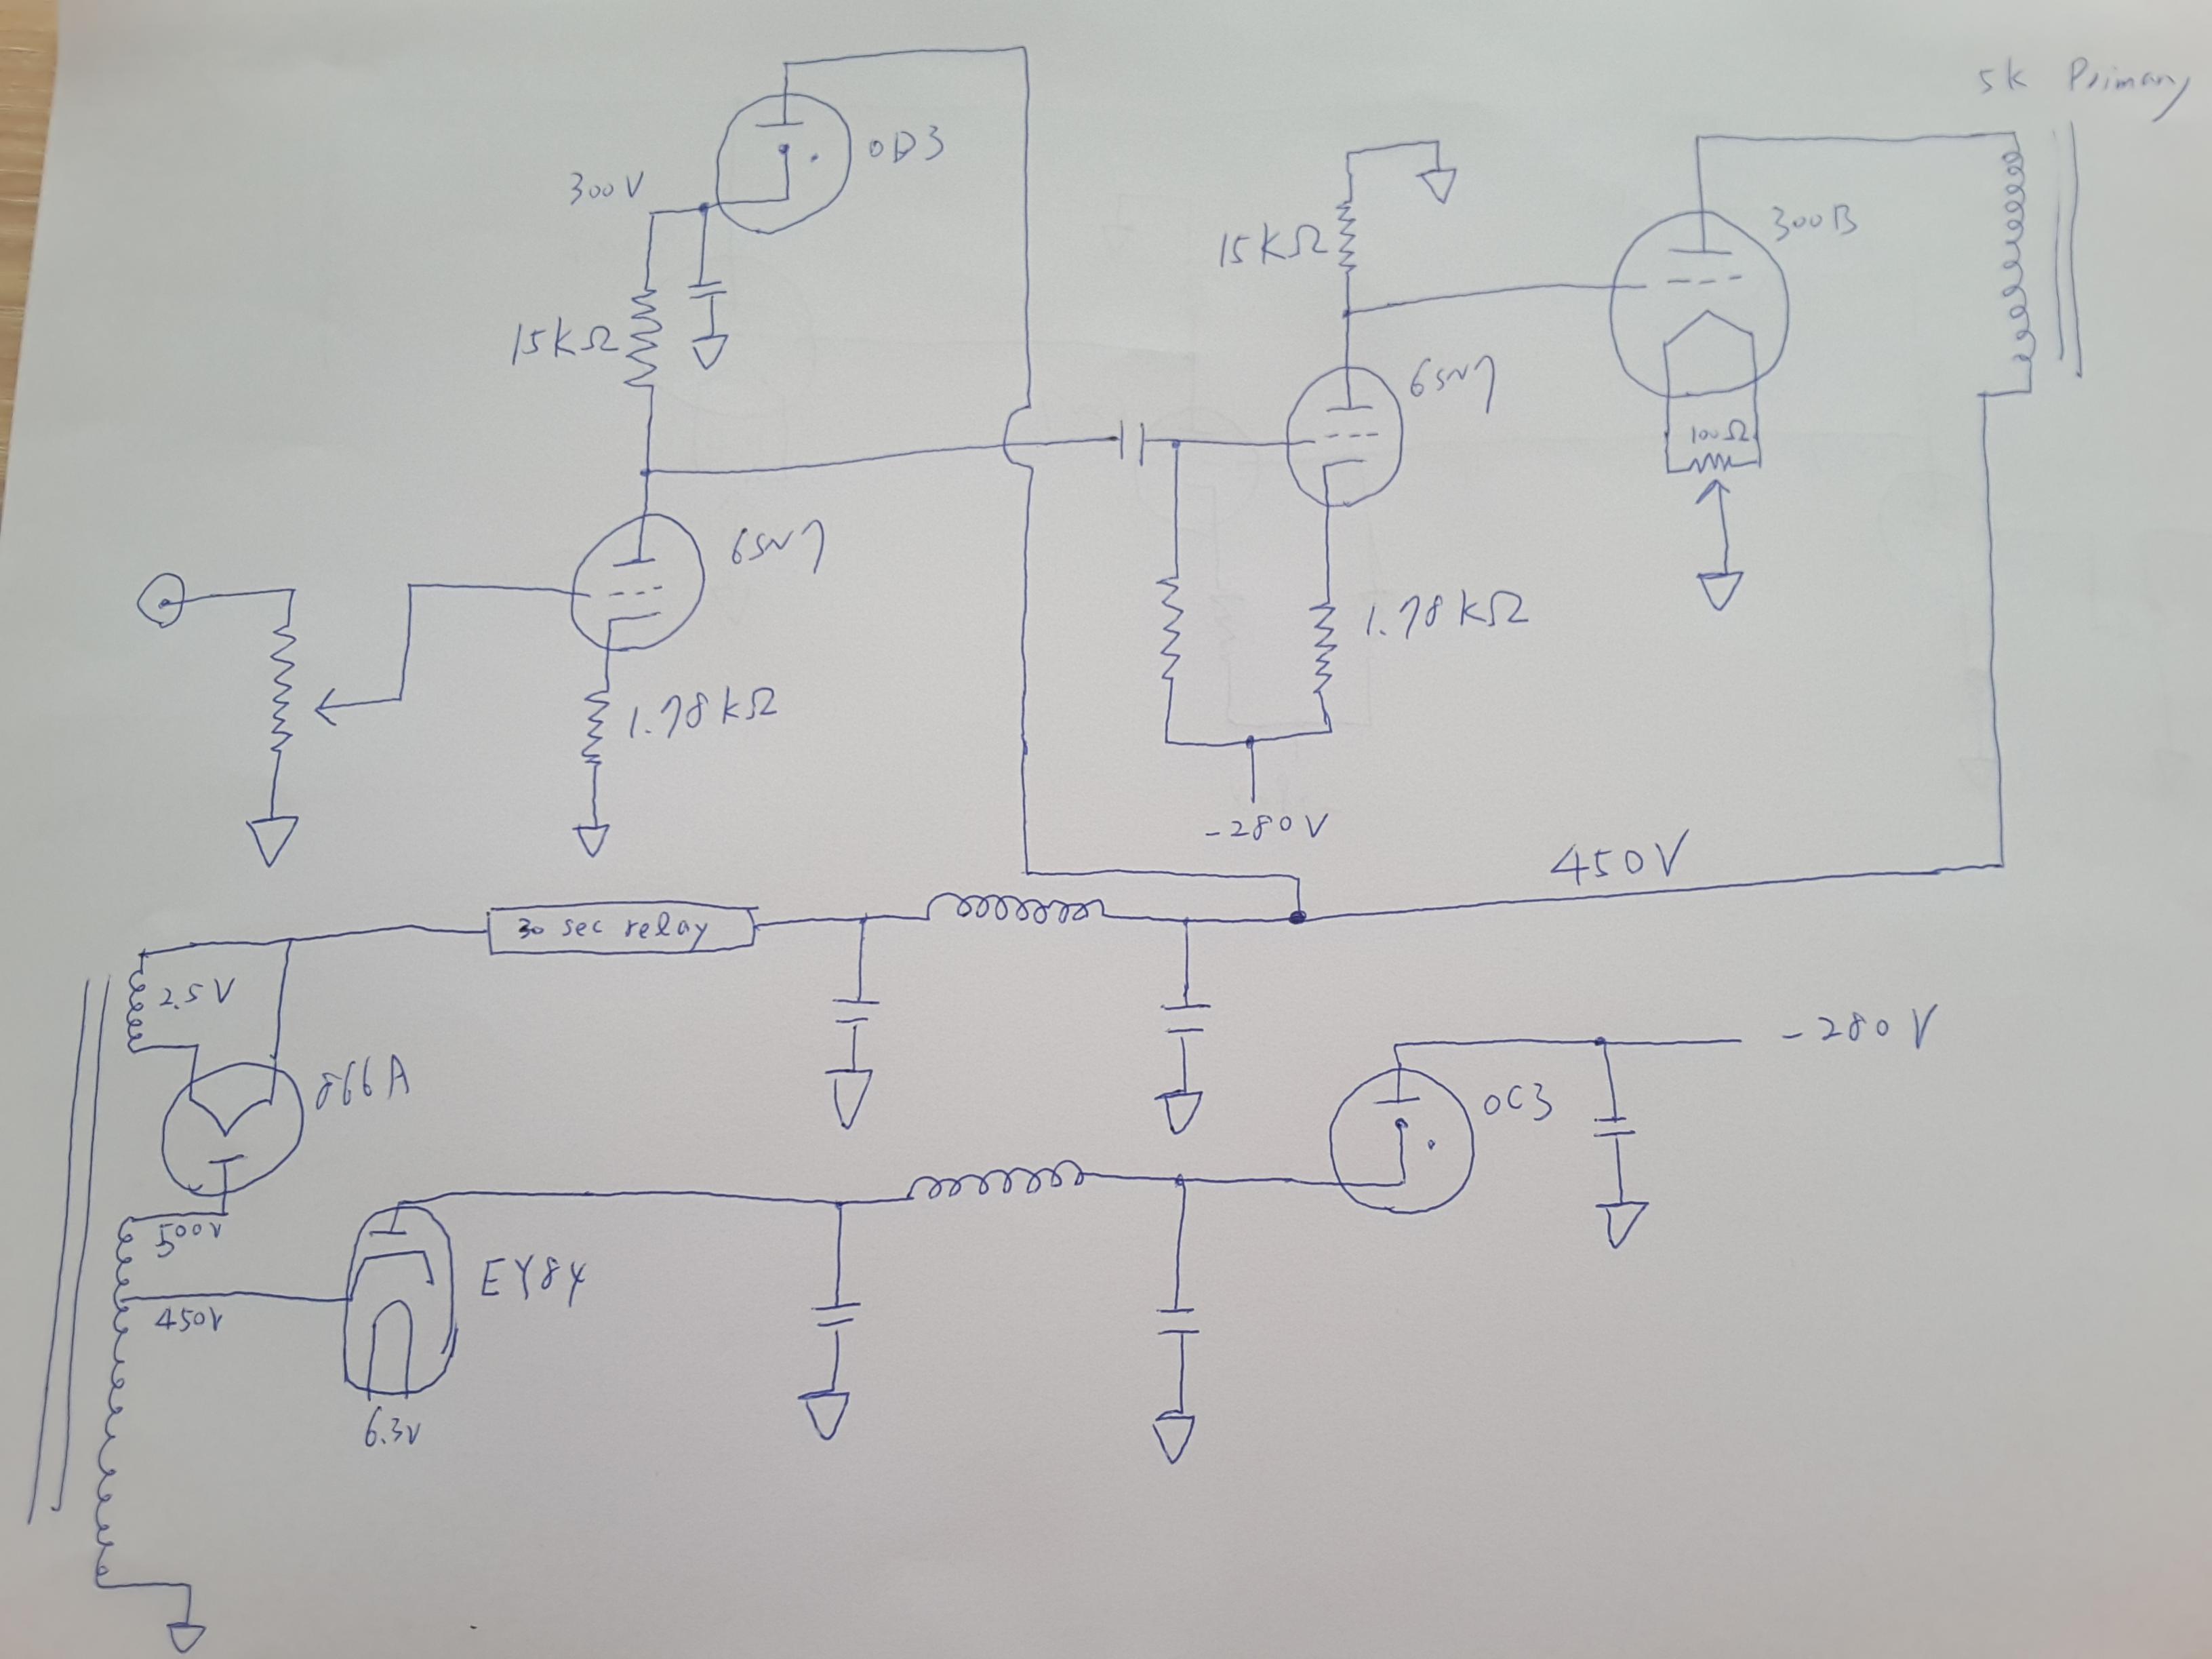 5k Primary
0D3
300V
300B
15KΩ
15KΩ
6SN7
100Ω
6SN7
1.78kΩ
1.78kΩ
-280V
450V
30 sec relay
2.5V
-280V
866A
0C3
500V
EY84
450V
6.3V